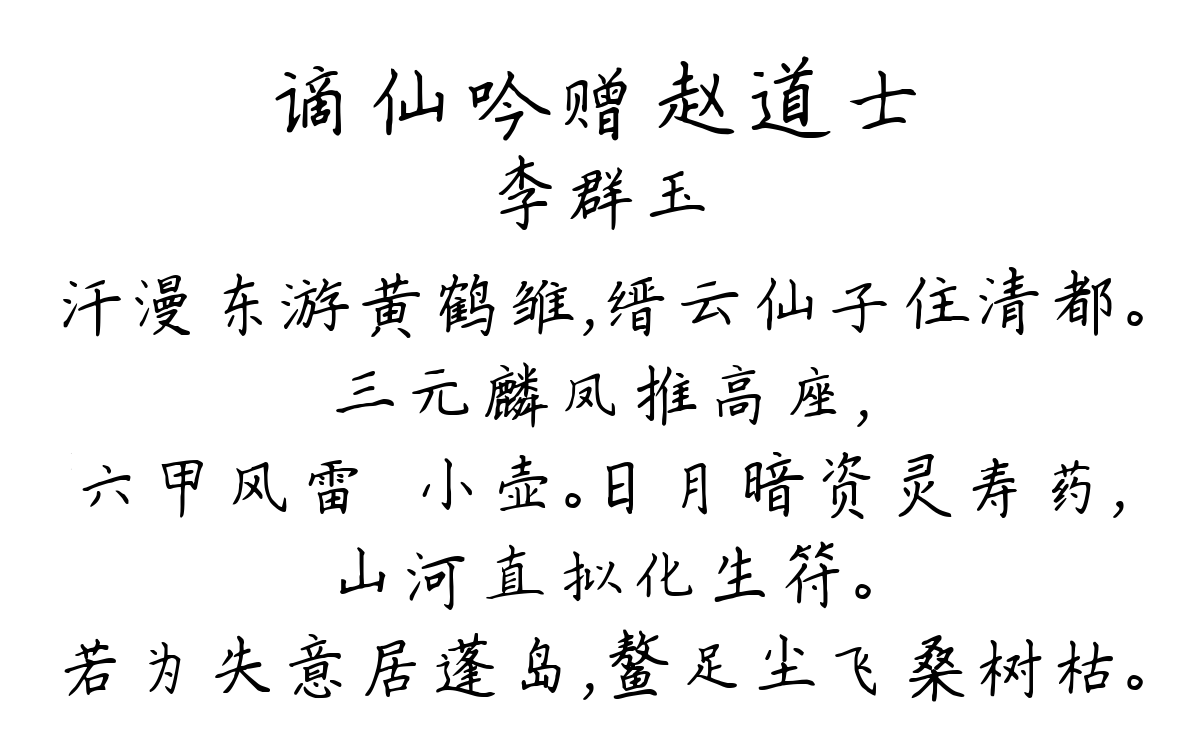 谪仙吟赠赵道士
李群玉
汗漫东游黄鹤雏,缙云仙子住清都。
三元麟凤推高座,
六甲风雷 小壶。日月暗资灵寿药,
山河直拟化生符。
若为失意居蓬岛,鳌足尘飞桑树枯。